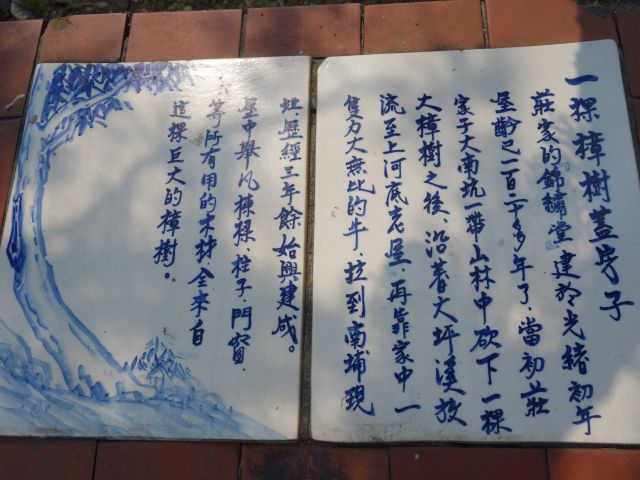 一棵樟樹蓋房子
莊家的錦繡堂建於光緒初年
屋齡已一百二十多年了，當初莊
家子大南坑一帶山林中砍下一棵
大樟樹之後、沿著大坪溪放
流至上河底老屋，再靠家中一
隻力大無比的牛，拉到南埔現
址，歷經三年餘始興建成。
屋中舉凡棟樑、柱子、門窗
等所有用的木材，全來自
這棵巨大的樟樹。